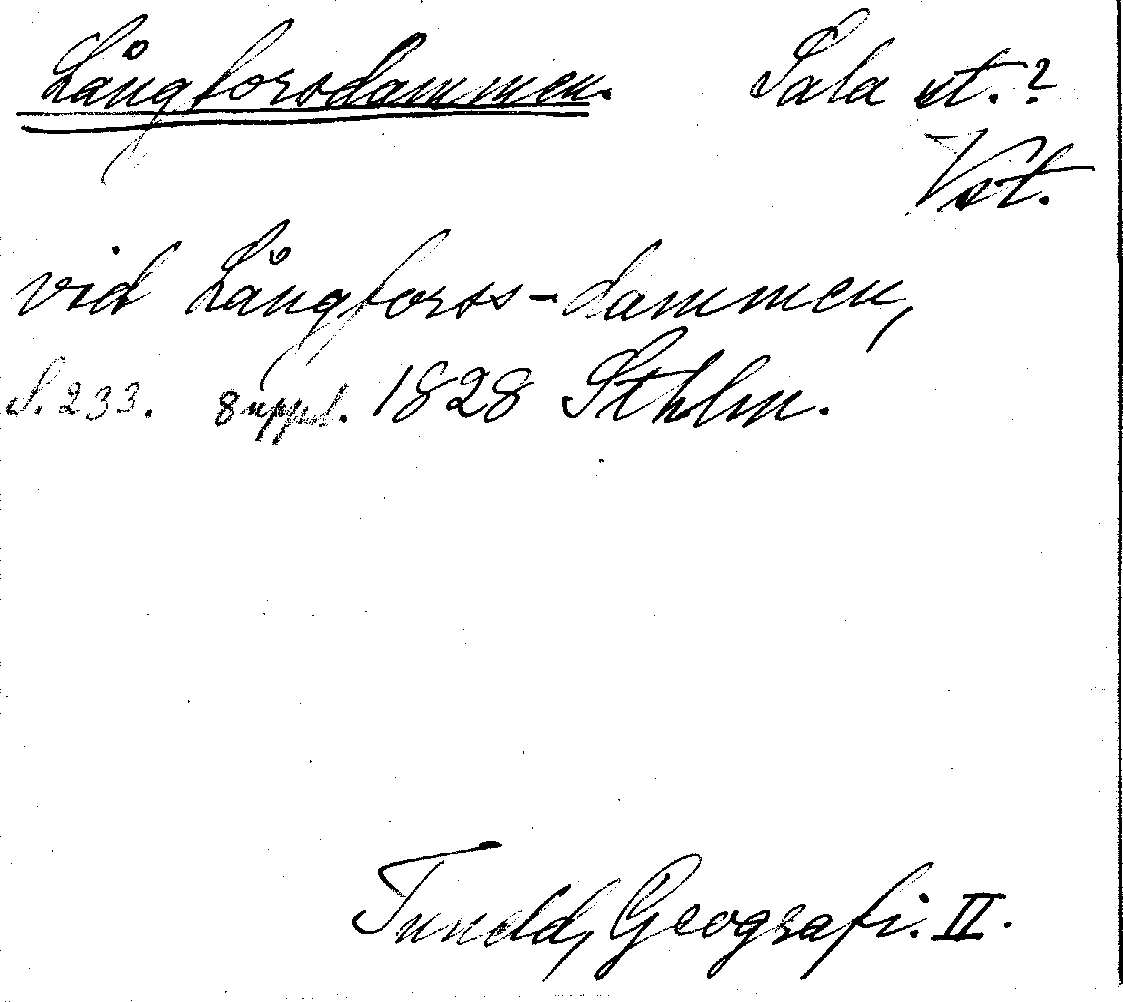 Långforsdammen. Sala st.?
Vst.
vid Långforss-dammen,
S. 233. 8 uppl. 1828 Sthlm.
Tuneld, Geografi. II.